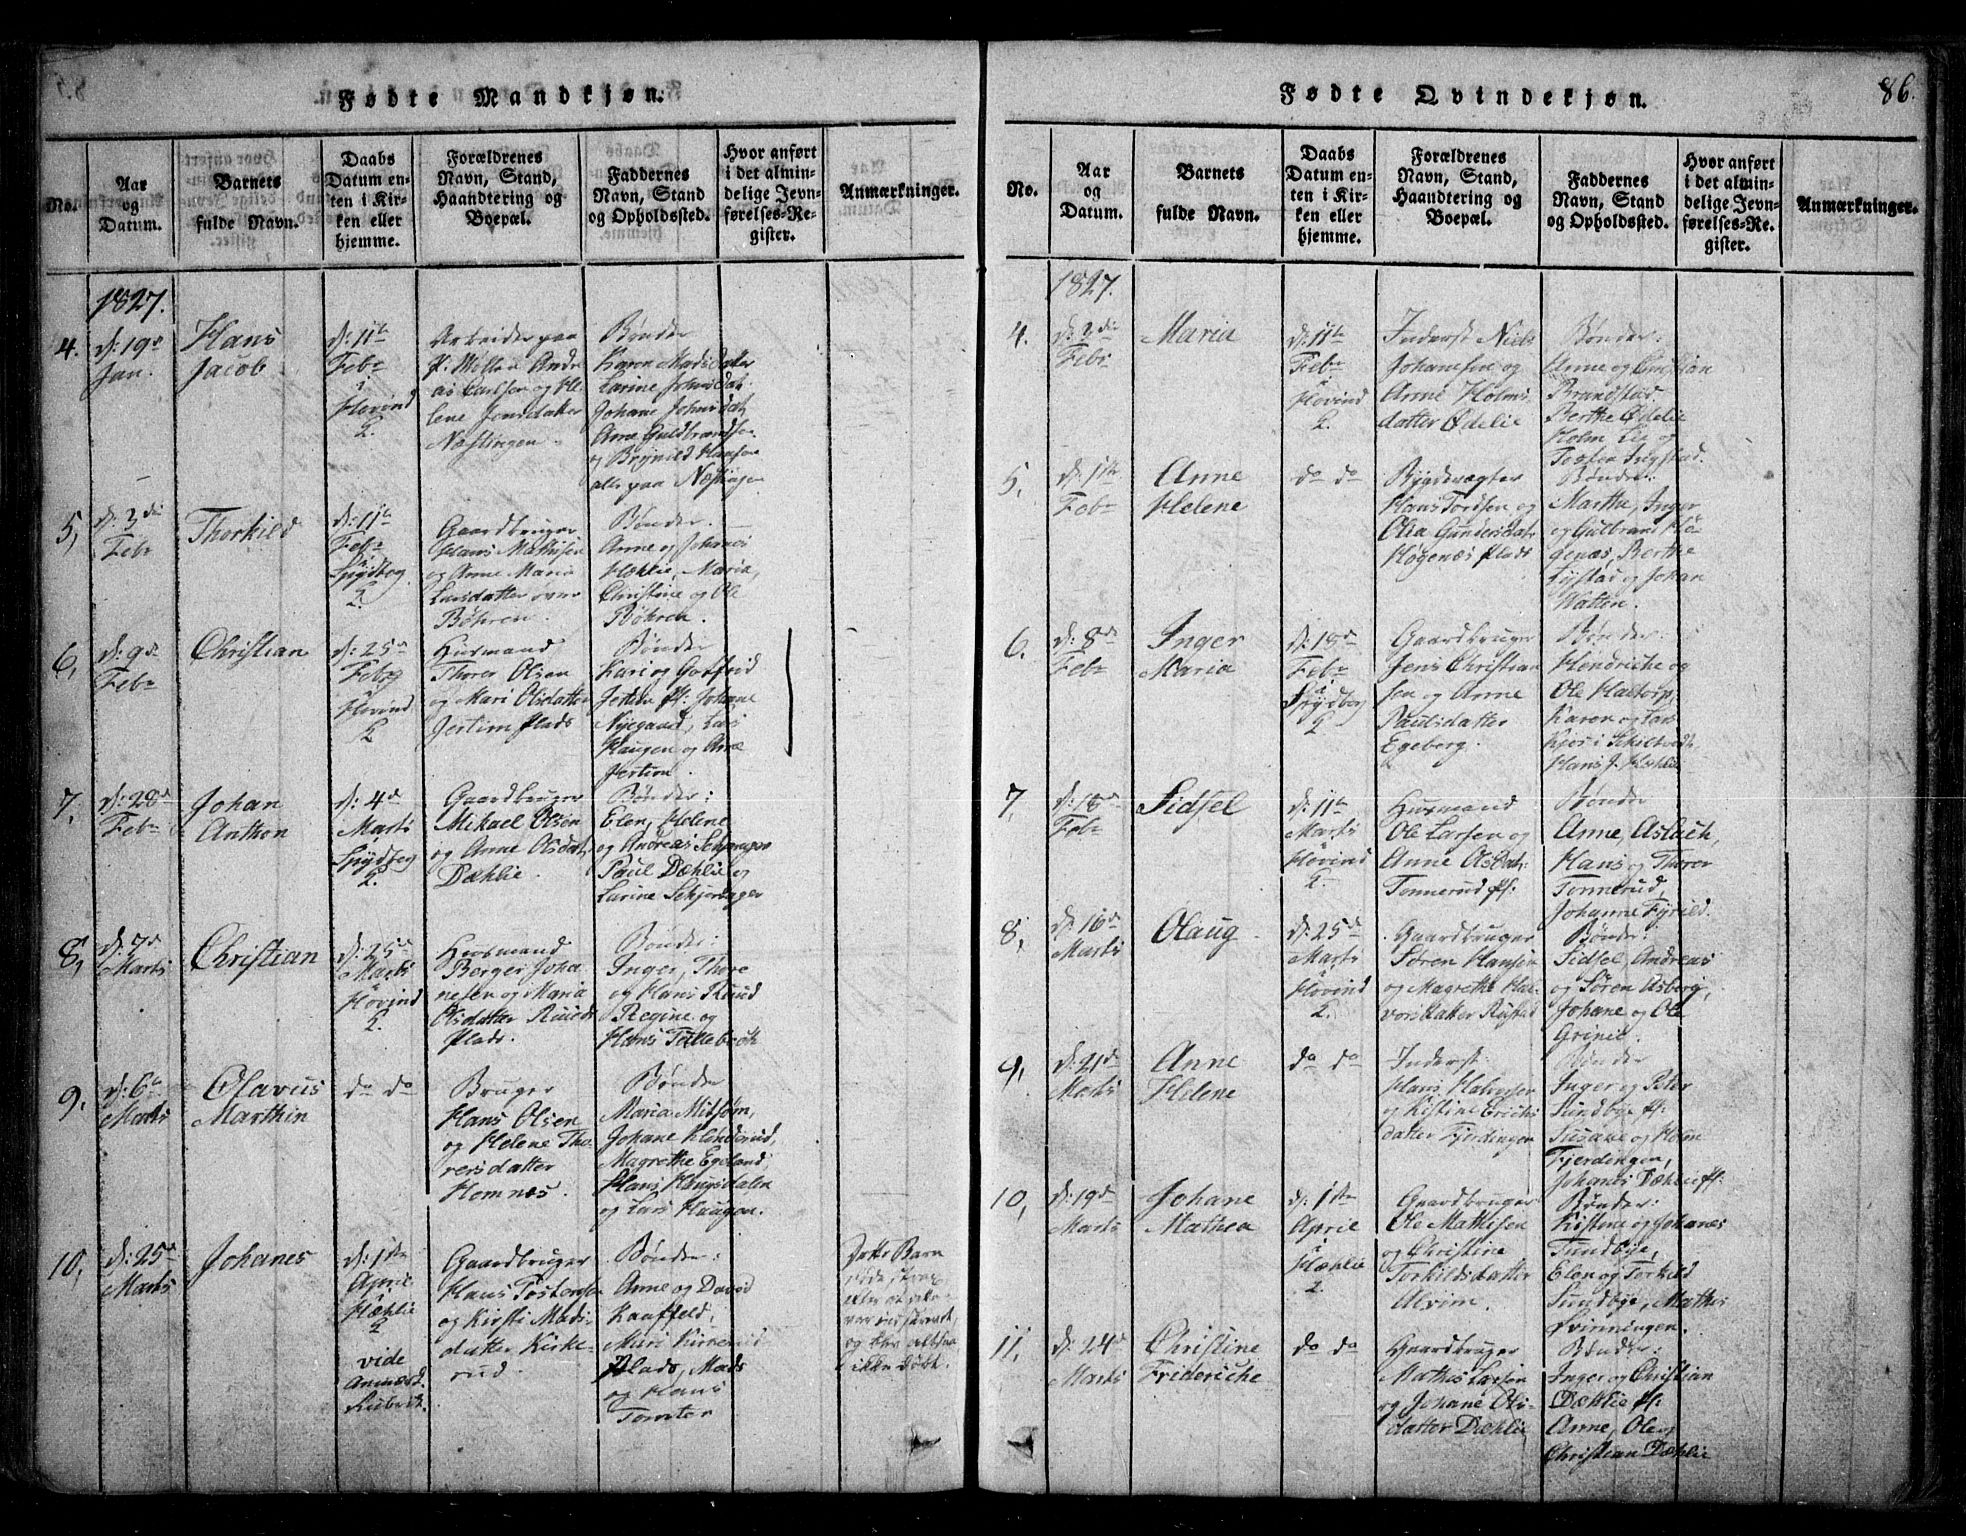 86.
Fødte Mandkjøn.
No.
Aar
og
Datum.
Barnets
fulde Navn.
Daabs
Datum en-
ten i Kir-
ken eller
hjemme.
Forældrenes
Navn, Stand,
Haandtering og
Boepæl.
Faddernes
Navn, Stand
og Opholdssted.
Hvor anført
i det almin-
delige Jevn-
førelses-Re-
gister.
Anmærkninger.
1827.
4.
d: 19
Jan.
Hans
Jacob
d: 11te
Febr
i
Hovind
2.
Arbeider paa
Andre
as Carlsen og He
lene Jonsdatter
Næstingen.
Bønder
Karen Madsdatter
Larine Johnsdat.
Johane Johnsdat
Anne Guldbrandsen
og Brynild Hansen
alle paa Næstingen
5,
d: 3die
Febr
Thorkild
d: 11te
Febr
i
Spydbg
2.
Gaardbruger
Hans Mathisen
og Anne Maria
Larsdatter øvre
Bøhren.
Bønder.
Anne og Johanes
Hæhlie, Maria,
Christine og Ole
Bøhren.
6,
d: 9de
Febr
Christian
d: 25
Febr
i
Hovind
2
Husmand
Thorer Olsen
og Mari Olsdatter
Jertim Plads
Bønder
Kari og Gotfrid
Jertim Pl: Johane
Nyegaard, Lars
Haugen og Anne
Jertim.
7,
d: 28
Febr
Johan
Anthon
d: 4d
Marts
Spydbeg
2.
Gaardbruger
Mikael Olsen
og Anne Olsdat.
Dæhlie.
Bønder:
Elen, Helene
og Andreas
Paul Dæhlie og
Larine
8,
d: 7d
Marts
Christian
d: 25
Marts
i
Hovind
2.
Huusmand
Berger Joha
nesen og Maria
Olsdatter Ruuds
Plads.
Bønder:
Inger, Thore
og Hans Ruud
Regine og
Hans
9.
d: 6te
Marts
Olavus
Marthin
do do
Bruger
Hans Olsen
og Helene Tho-
rersdatter
Homnes.
Bønder
Maria
Johane
Magrethe Egeland,
Hans
og Lars Haugen.
10,
d: 25
Marts
Johanes
d: 1ste
April
i
Hæhlie
2
vide
Anmærk.
Rubrik.
Gaardbruger
Hans Tostensen
og Kirsti Mads-
datter Kirke-
rud.
Bønder:
Anne og David
Kaatfeld,
Mari Kirkerud
Plads, Mads
og Hans
Tomter
Dette Barn
døde
og blev altsaa
ikke døbt.
Fødte Qvindekjøn.
No.
Aar
og
Datum.
Barnets
fulde Navn.
Daabs
Datum en-
ten i Kir-
ken eller
hjemme.
Forældrenes
Navn, Stand,
Haandtering og
Boepæl.
Faddernes
Navn, Stand
og Opholdssted.
Hvor anført
i det almin-
delige Jevn-
førelses-Re-
gister.
Anmærkninger.
1827.
4.
d: 2den
Febr
Maria
d: 11te
Febr
i
Hovind
2.
Inderst Niels
Johanesen og
Anne Holms
datter Ødelie
Bønder:
Anne og Christian
Brandstad.
Berthe Ødelie
Holm Lie og
Tosten Ingstad.
5,
d: 1ste
Febr
Anne
Helene
do do
Bygdevægter
Hans Tordsen og
Olia Gundersdat.
Høgenæs Plads
Bønder:
Marthe, Inger
og Gulbrand Hø
genæs, Berthe
og Johan
Watten.
6.
d: 8de
Febr
Inger
Maria
d: 18de
Febr
i
Spydbeg
2
Gaardbruger
Jens Christian
sen og Anne
Paulsdatter
Egeberg.
Bønder:
Hendriche og
Ole Hastorp,
Karen og Lars
Hans J. Hæhlie
7,
d: 18d
Febr
Sidsel
d: 11te
Marts
i
Hovind
2
Husmand
Ole Larsen og
Anne Olsdat:
Tonnerud Pl:
Bønder
Anne, Aslach,
Hans og Thorer
Tonnerud,
Johanne Fyrield.
8,
d: 16d
Marts
Olaug
d: 25d
Marts
i
Hovind
2.
Gaardbruger
Søren Hansen
og Magrethe Hal-
vorsdatter Rustad
Bønder:
Sidsel, Andreas
og Søren Asberg,
Johane og Ole
Grinie.
9,
d: 21d
Marts
Anne
Helene
do do
Inderst
Hans Halvorsen
og Kistine Erichs
datter Fjerdingen
Bønder
Inger og Peter
Sundbye Pl:
Susane og Holm
Fjerdingen,
Johanes Dæhlie Pl:
10,
d: 19d
Marts
Johane
Mathea
d: 1ste
April
i
Hæhlie
2
Gaardbruger
Ole Mathisen
og Christine
Torkildsdatter
Alvim.
Bønder:
Kistene og Johanes
Sundbye,
Elen og Torkild
Sundbye, Mathis
Qvinningen.
11,
d: 24d
Marts
Christine
Friderische
do do
Gaardbruger
Mathis Larsen
og Johane Ols-
datter Dæhlie
Bønder:
Inger og Christian
Dæhlie Pl:
Anne, Ole og
Christian Dæhlie